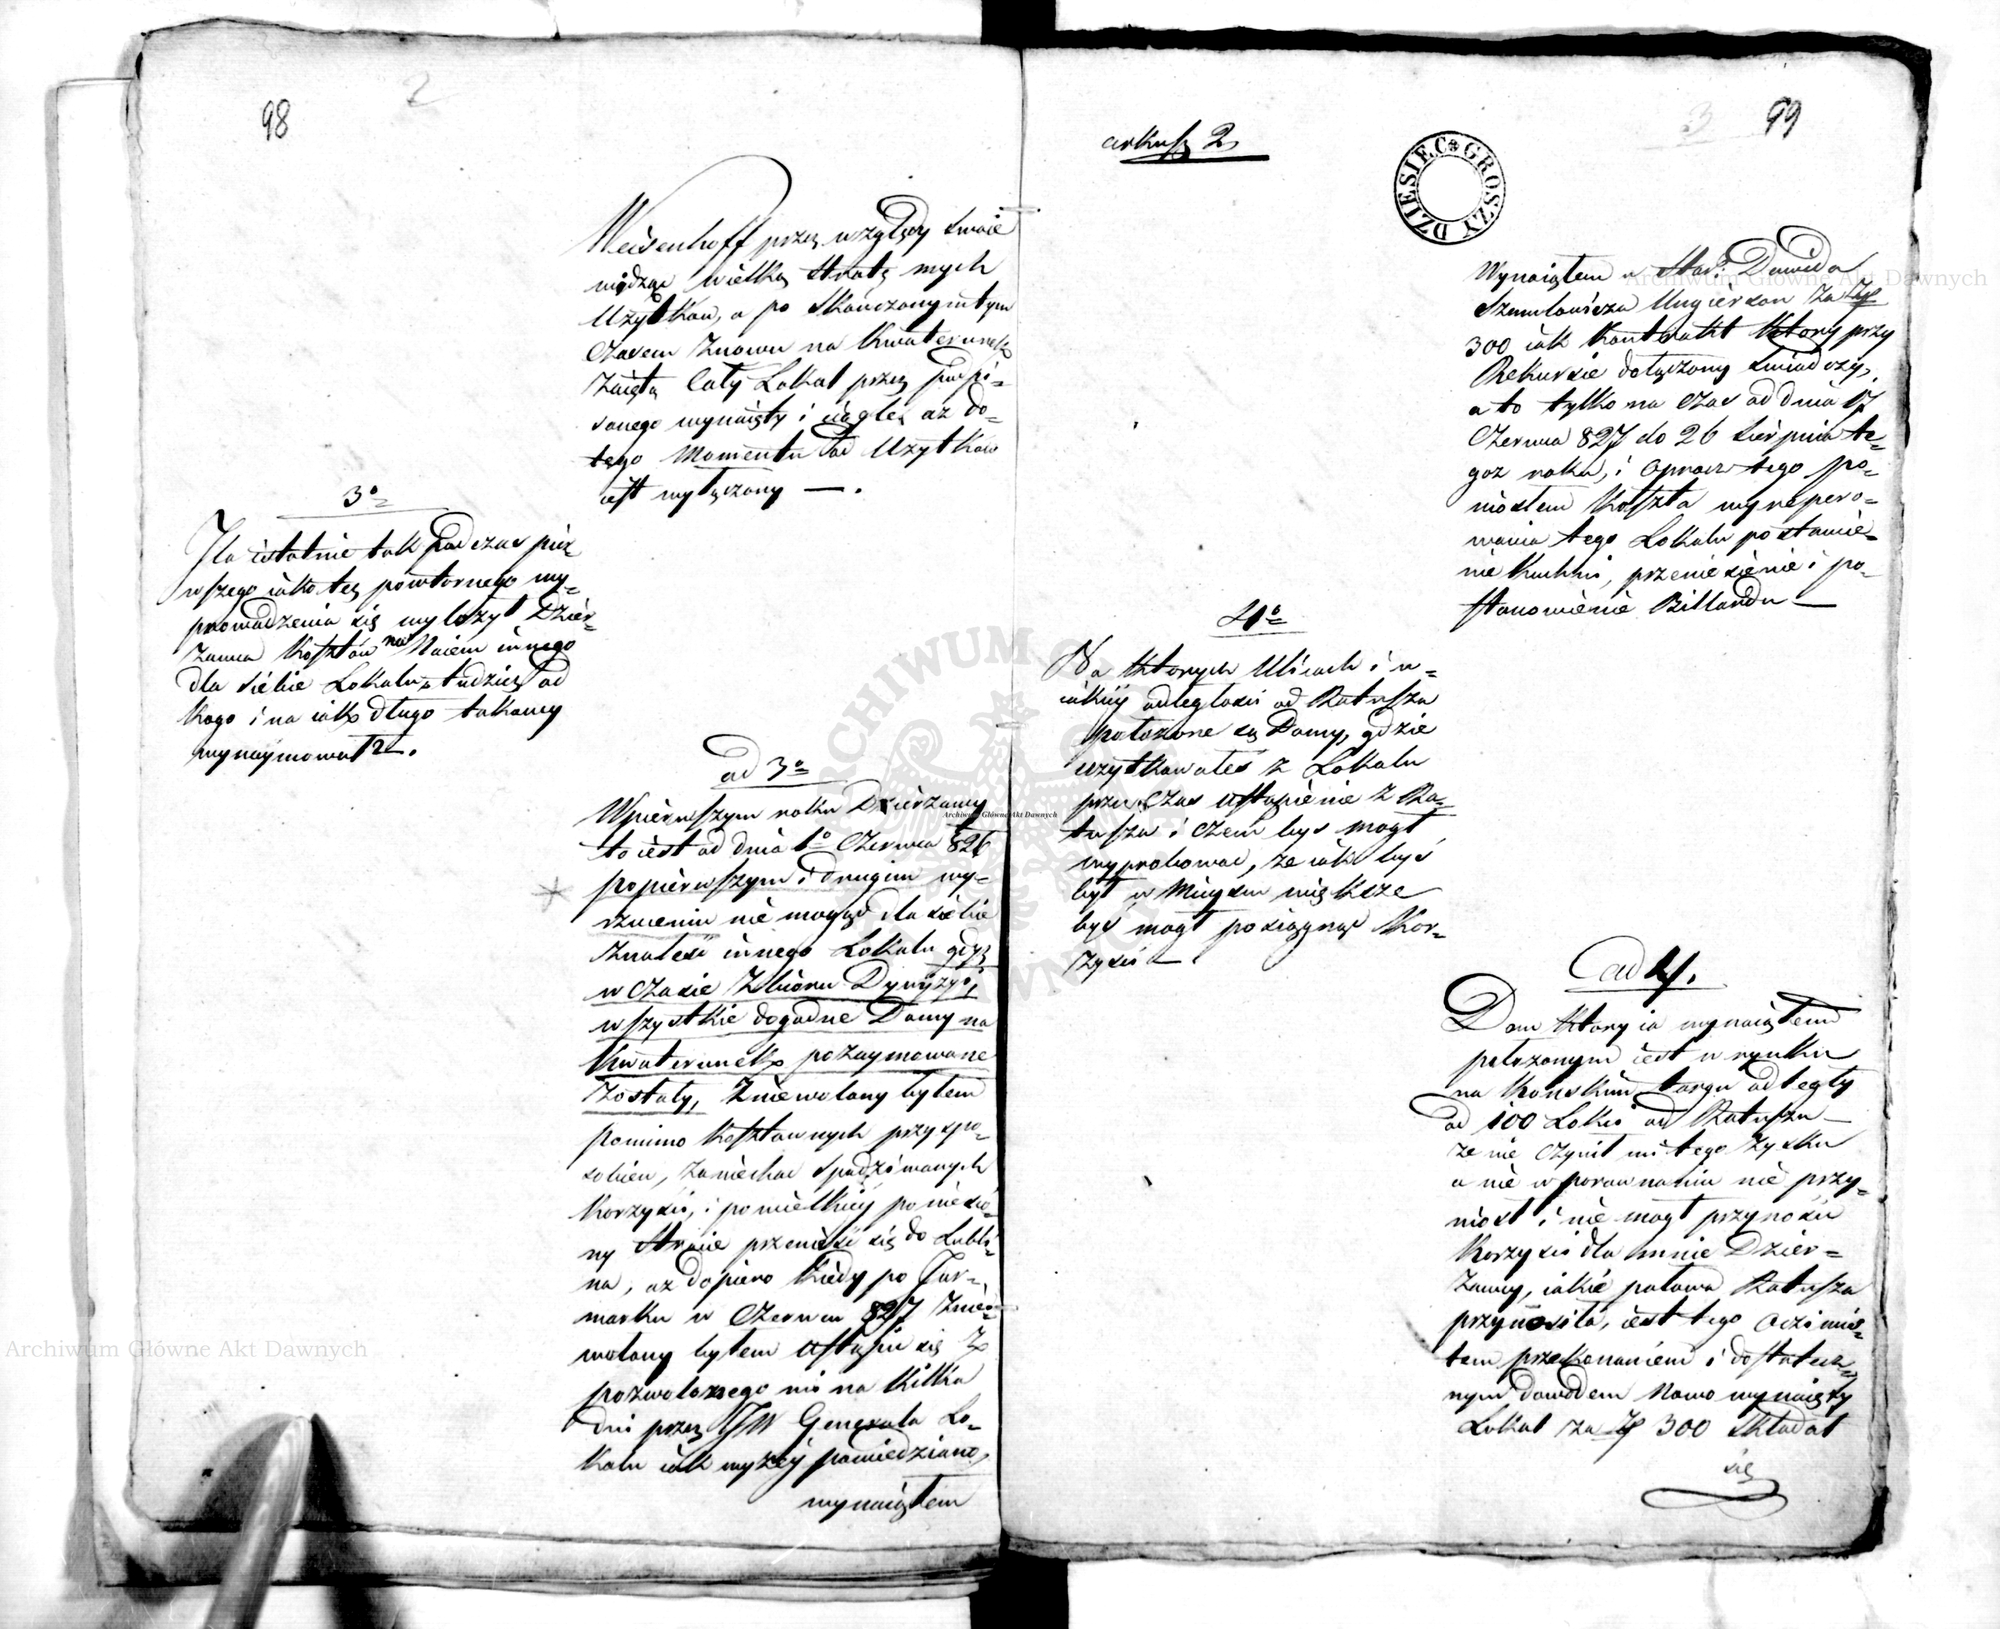 98
2
Weisenhoff przez względy swoie
widząc wielką stratę mych
Użytków, a po skończonym tym
Czasem znowu na Kwaterunek
Zaięty cały Lokal przez podpi=
sanego wynaięty i ciągle aż do=
tego Momentu od Użytków
iest wyłączony —.
3º
Ila istotnie tak podczas pier
wszego iako też powtornego wy=
prowadzenia się wyłożył Dzier=
żawca Kosztów na Naiem innego
dla siebie Lokalu, tudzież od
kogo i na iak długo takowy
wynaymował? —.
ad 3º
W pierwszym roku Dzierżawy
to iest od dnia 1º Czerwca 826
po pierwszym i drugim wy=
rzuceniu nie mogąc dla siebie
znaleść innego Lokalu gdyż
w czasie Zbioru Dywizyi,
wszystkie dogodne Domy na
Kwaterunek pozaymowane
zostały, zniewolony byłem
pomimo kosztownych przyspo=
sobień, zaniechać spodziewanych
korzyści, i po wielkiéy poniesio=
ny stracie przenieść się do Lubli=
na, aż dopiero kiedy po Jar=
marku w Czerwcu 827 znie=
wolony byłem ustąpić się z
pozwolonego mi na kilka
dni przez JW Generała Lo=
kalu iak wyżéy powiedziano,
wynaiąłem
99
3
arkusz 2
DZIESIEC GROSZY
Wynaiąłem u Star: Dawida
Szmulowicza Ungierson za Zł
300 iak Kontrakt który przy
Rekursie dołączony świadczy,
a to tylko na czas od dnia 17
Czerwca 827 do 26 Sierpnia te=
goż roku, i oprocz tego po=
niosłem Koszta wyrepero=
wania tego Lokalu postawie=
nie kuchni, przeniesienie i po=
stanowienie Billardu —
4º
Na których Ulicach i w=
iakiéy odległości od Ratusza
położone są Domy, gdzie
użytkowałeś z Lokalu
przez czas ustąpienia z Ra=
tusza i czem byś mogł
wyprobować, że iak byś
był w Mieyscu większe
byś mogł pociągnąć Kor=
zyści —
ad 4.
Dom który ia wynaiąłem
położonym iest w rynku
na Końskim targu odległy
od 100 Łokci od Ratusza —
że nie czynił mi tego zysku
a nie w porownaniu nie przy=
niosł i nie mogł przynosić
Korzyści dla mnie Dzier=
żawcy, iakie połowa Ratusza
przynosiła, iest tego oczewis=
tem przekonaniem i dostatecz=
nym dowodem Nowo wynaięty
Lokal za Zł 300 składał
się